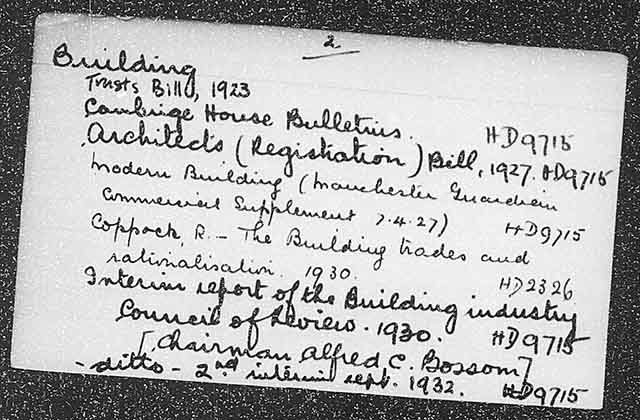 2
Building
Trusts Bill, 1923
Cambrige House Bulletins. HD9715
Architects (Registration) Bill, 1927. HD9715
Modern Building (Manchester Guardian
Commercial Supplement 7.4.27) HD9715
Coppock, R. - The Building trades and
rationalisation. 1930. HD2326
Interim report of the Building industry
Council of Review. 1930. HD9715
[Chairman Alfred C. Bossom]
- ditto - 2nd interim rept. 1932. HD9715